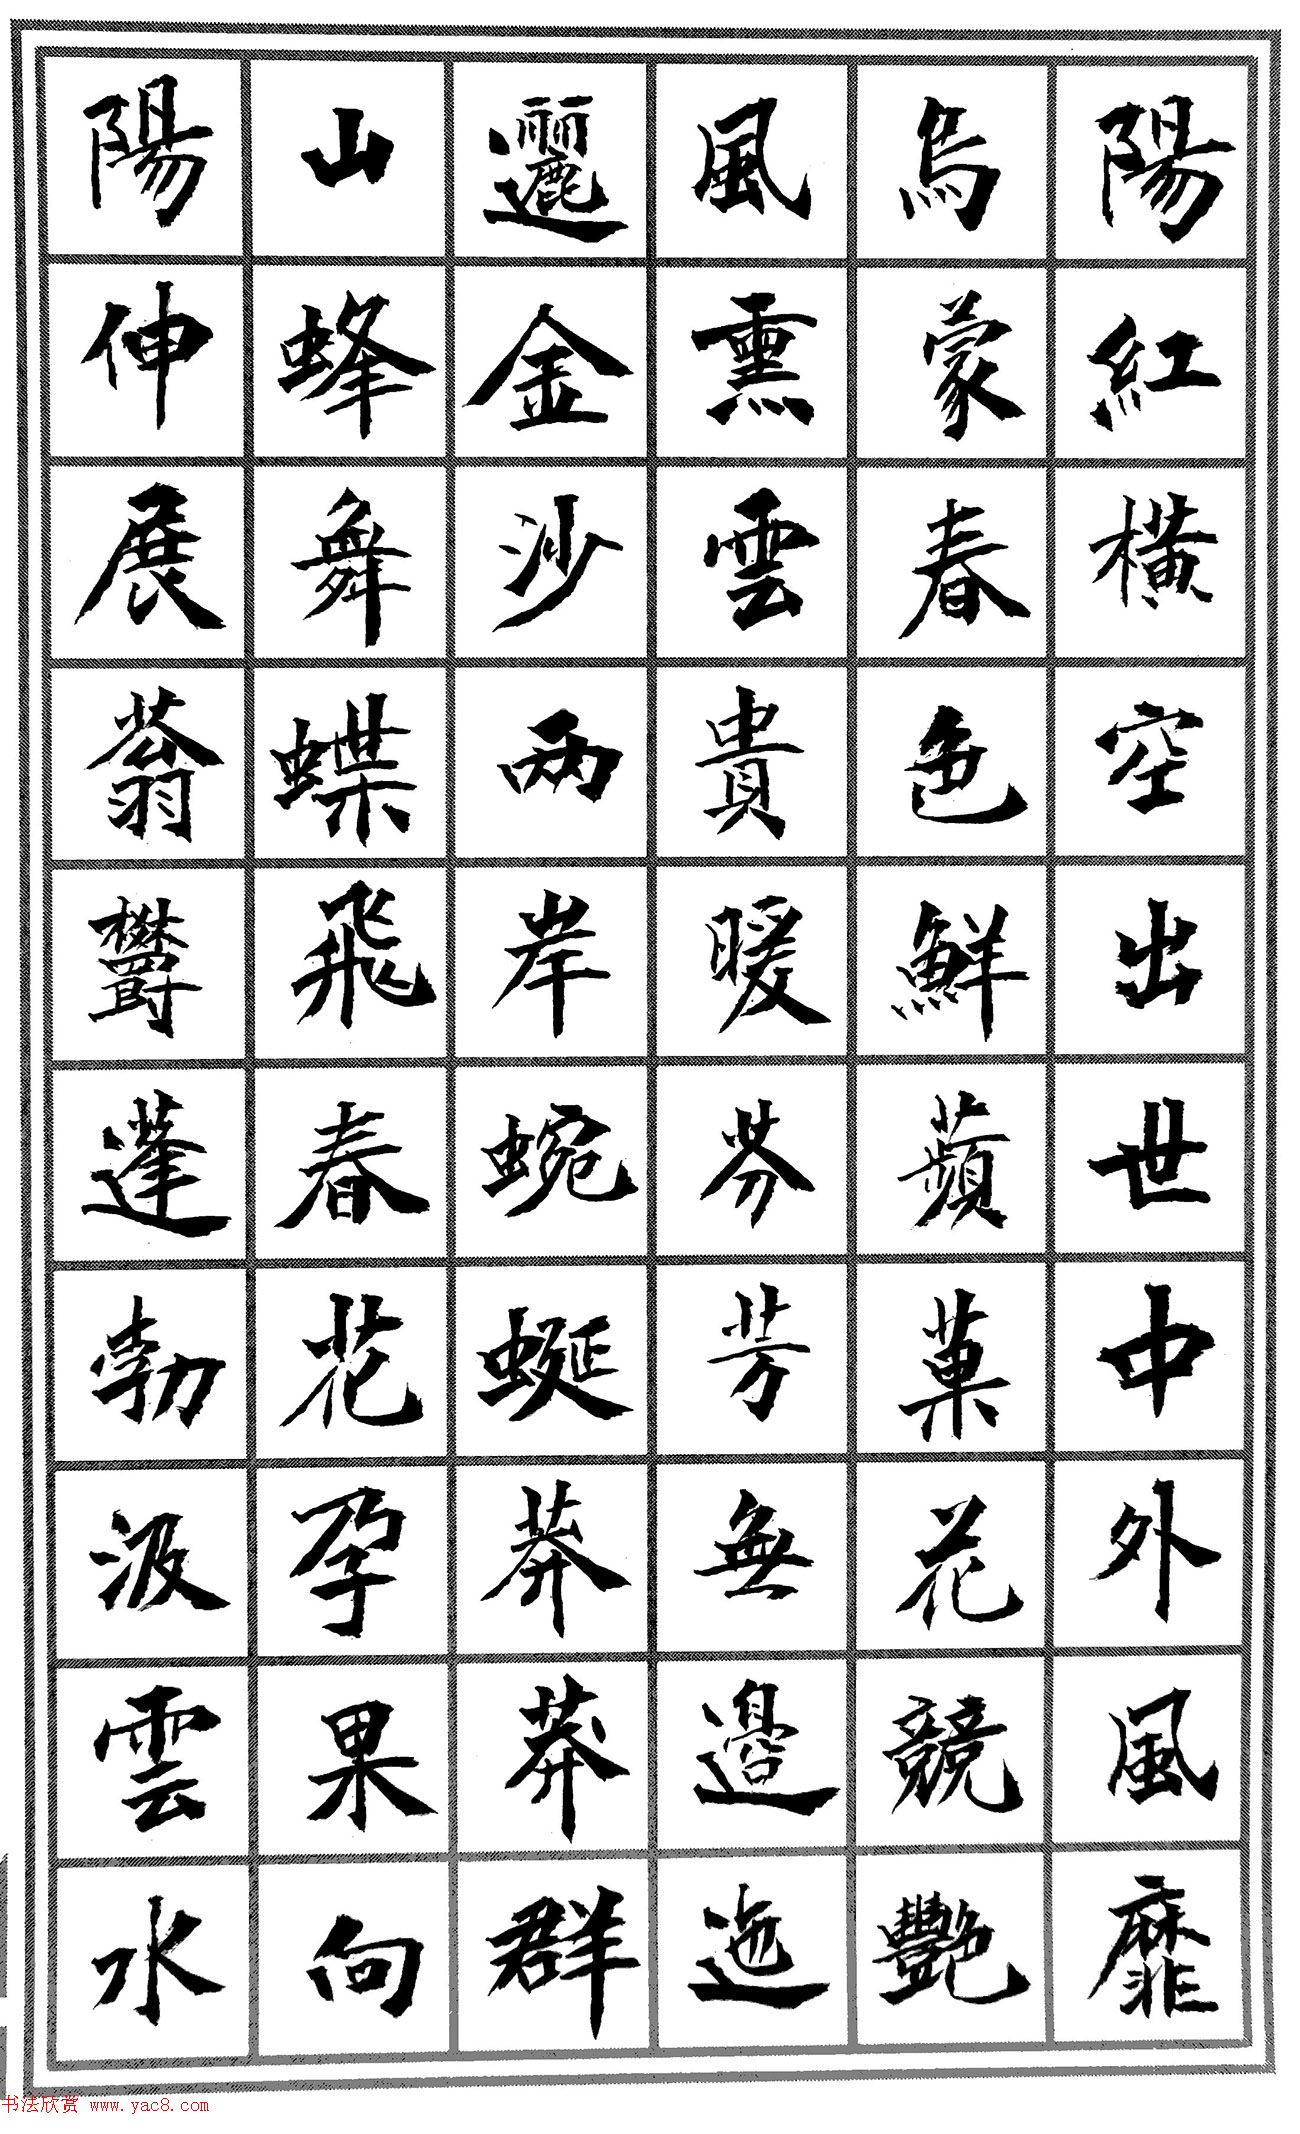 陽紅橫空出世中外風靡
烏蒙春色鮮蘋菓花競艷
風熏雲貴暖芬芳無邊迤
邐金沙兩岸蜿蜒莽莽群
山蜂舞蝶飛春花孕果向
陽伸展蓊鬱蓬勃汲雲水
书法欣赏 www.yac8.com